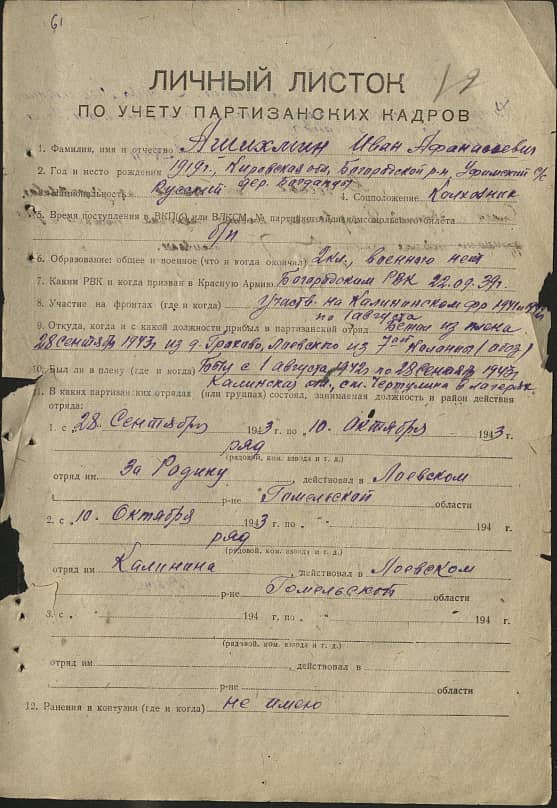 61
ЛИЧНЫЙ ЛИСТОК
ПО УЧЕТУ ПАРТИЗАНСКИХ КАДРОВ
1. Фамилия, имя и отчество Ашихмин Иван Афанасьевич
2. Год и место рождения 1919г., Кировская обл, Богородской р-н, Уфимский с/с
Русский дер.
4. Соцположение Колхозник
5. Время поступления в ВКП(б) или ВЛКСМ, № партийного или комсомольского билета
б/п
6. Образование: общее и военное (что и когда окончил) 2кл., военного нет
7. Каким РВК и когда призван в Красную Армию Богородским РВК 22.09.39г.
8. Участие на фронтах (где и когда) Участв. на Калининском фр 1941
по 1 августа
9. Откуда, когда и с какой должности прибыл в партизанский отряд Бежал из плена
28 сентября 1943, из д. Лоевского из 7
10. Был ли в плену (где и когда) Был с 1 августа 1942 по 28 сентября 1943г
ст. Чертулина в лагерях
11. В каких партизанских отрядах (или группах) состоял, занимаемая должность и район действия
отряда:
1. с 28 Сентября 1943 г. по 10 Октября 1943 г.
ряд
(рядовой, ком. взвода и т. д.)
отряд им За Родину действовал в Лоевском
р-не Гомельской области
2. с 10 Октября 1943 г. по 194 г.
ряд
(рядовой, ком. взвода и т. д.)
отряд им Калинина, действовал в Лоевском
р-не Гомельской области
3. с 194 г. по 194 г.
(рядовой, ком. взвода и т. д.)
отряд им. действовал в
р-не области
12. Ранения и контузии (где и когда) не имею